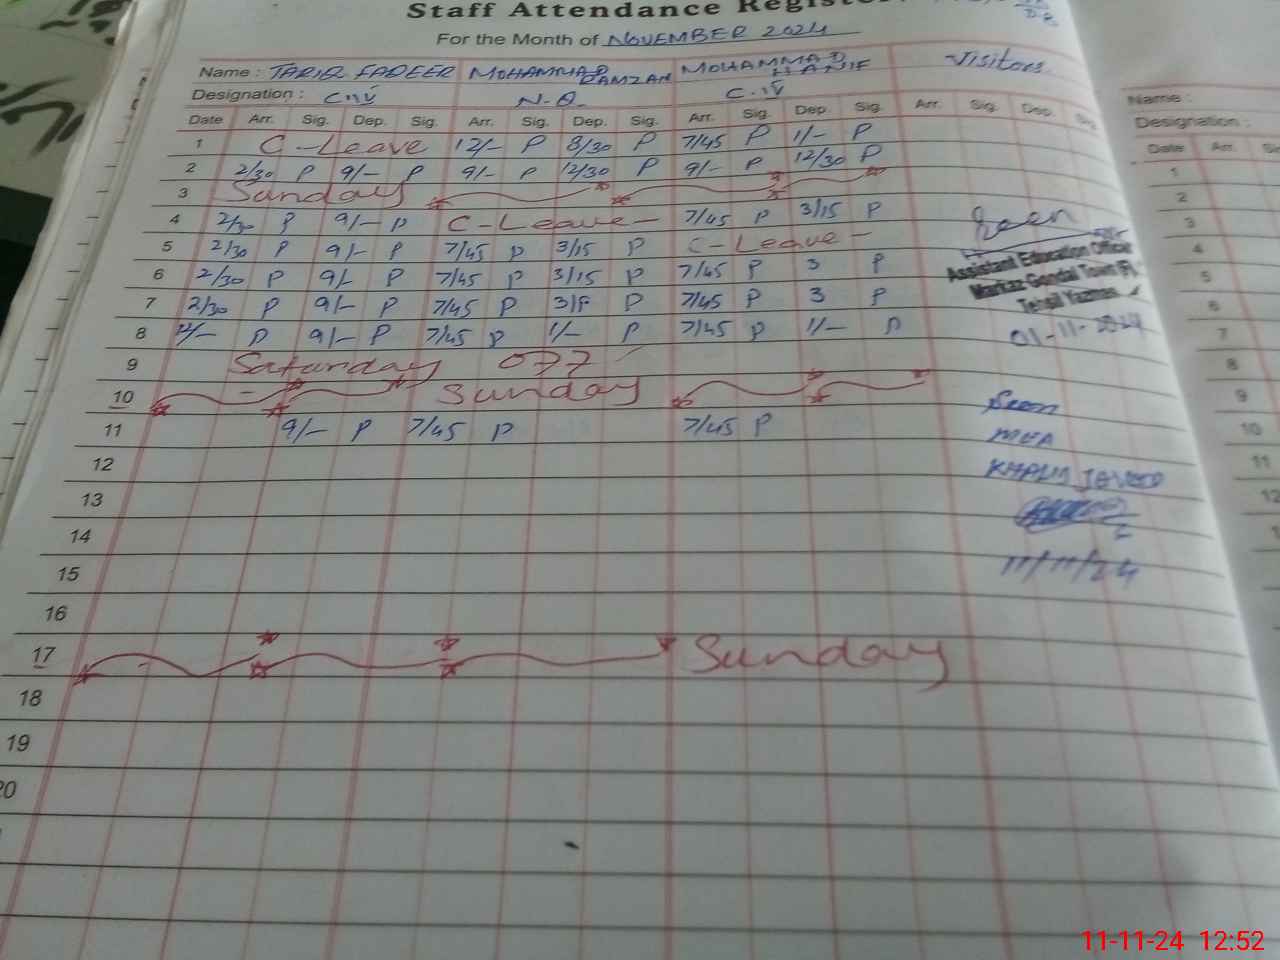 Staff Attendance Register
For the Month of NOVEMBER 2024
Name : TARIQ FADEER MOHAMMAD RAMZAN MOHAMMAD HANIF Visitors
Designation : C.IV N.Q. C.IV
Date Arr. Sig. Dep. Sig. Arr. Sig. Dep. Sig. Arr. Sig. Dep. Sig. Arr. Sig. Dep. Sig
1 C-Leave 12/- P 8/30 P 7/45 P 1/- P
2 2/30 P 9/- P 9/- P 12/30 P 9/- P 12/30 P
3 Sunday
4 2/30 P 9/- P C-Leave- 7/45 P 3/15 P
5 2/30 P 9/- P 7/45 P 3/15 P C-Leave-
6 2/30 P 9/- P 7/45 P 3/15 P 7/45 P 3 P
7 2/30 P 9/- P 7/45 P P 7/45 P 3 P
8 P 9/- P 7/45 P 1/- P 7/45 P 1/- P
9 Saturday OFF
10 Sunday
11 9/- P 7/45 P 7/45 P
12
13
14
15
16
17 Sunday
18
19
20
Seen
Assistant Education Officer
Markaz Gondal Town
Tehsil Yazman
01-11-2024
Seen
MEA
11/11/24
Name :
Designation :
Date Arr.
1
2
3
4
5
6
7
8
9
10
11
12
11-11-24 12:52